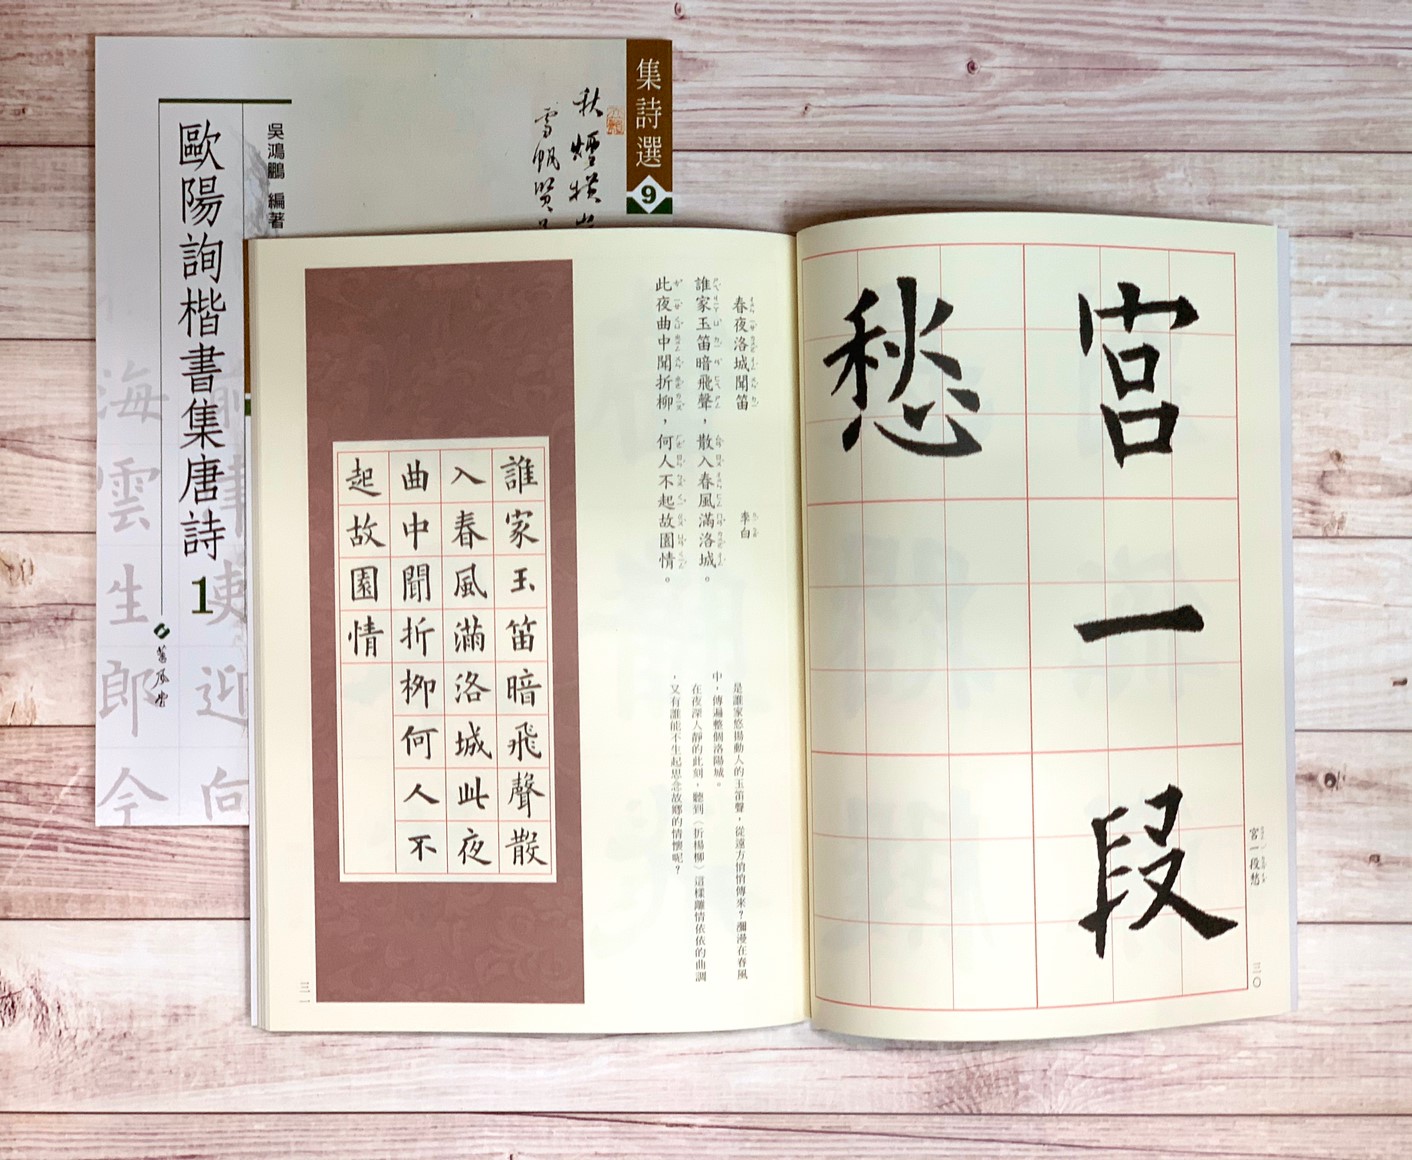 集詩選
9
秋煙橫
雪帆賢
吳鴻鵬 編著
歐陽詢楷書集唐詩1
舊風堂
津吏迎向
海雲生
郎今
宮一段
愁
宮一段愁
三〇
春夜洛城聞笛 李白
誰家玉笛暗飛聲，散入春風滿洛城。
此夜曲中聞折柳，何人不起故園情。
是誰家悠揚動人的玉笛聲，從遠方悄悄傳來？瀰漫在春風
中，傳遍整個洛陽城。
在夜深人靜的此刻，聽到（折楊柳）這樣離情依依的曲調
，又有誰能不生起思念故鄉的情懷呢？
誰家玉笛暗飛聲散
入春風滿洛城此夜
曲中聞折柳何人不
起故園情
三一